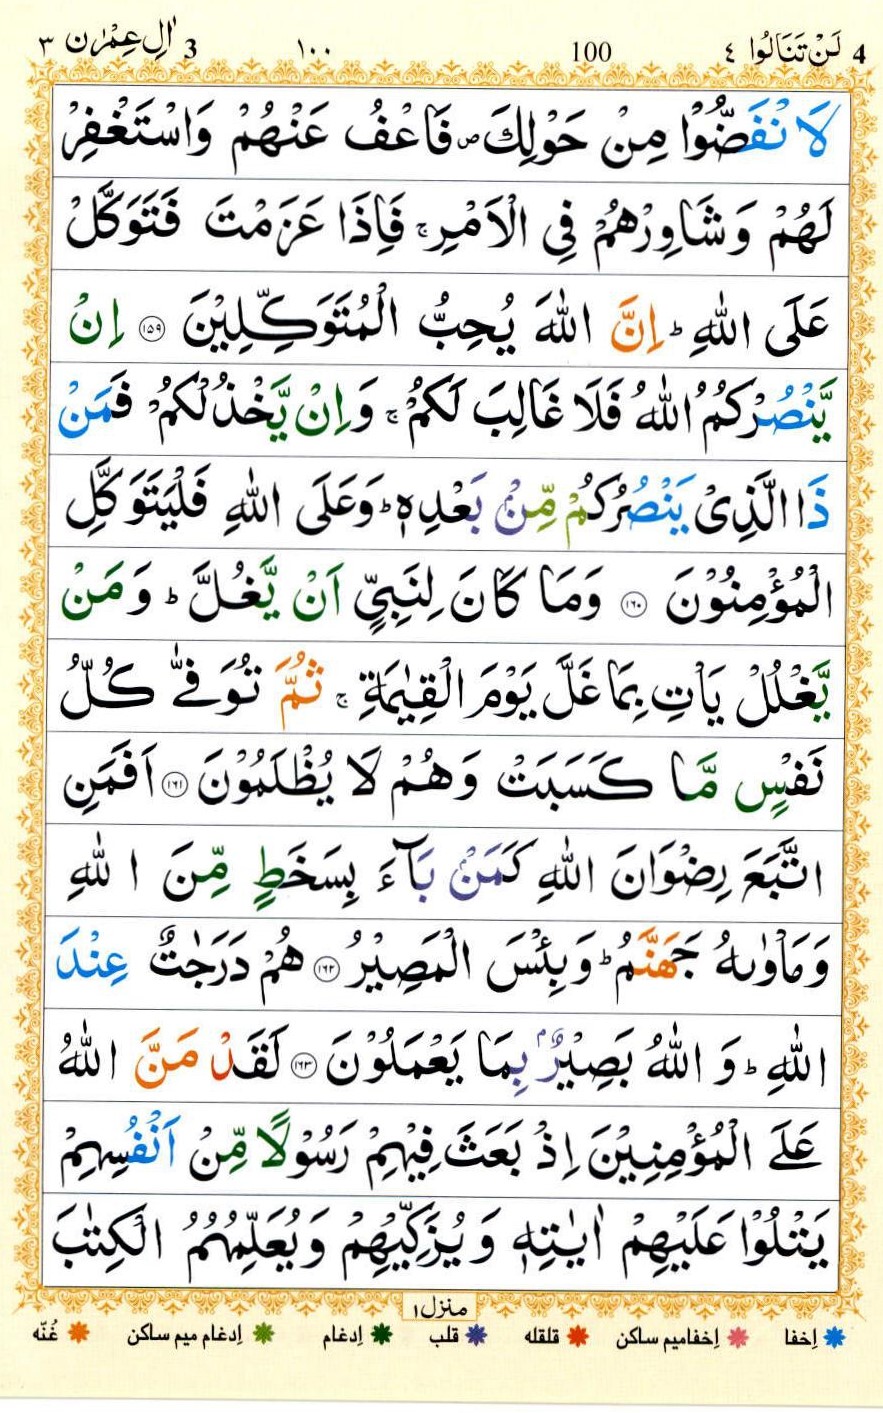 4 لَنْ تَنَالُوا ٤ 100 ١٠٠ 3 اٰلِ عِمْرٰن ٣
لَا نْفَضُّوْا مِنْ حَوْلِكَ ۪ فَاعْفُ عَنْهُمْ وَاسْتَغْفِرْ
لَهُمْ وَشَاوِرْهُمْ فِى الْاَمْرِ ۚ فَاِذَا عَزَمْتَ فَتَوَكَّلْ
عَلَى اللّٰهِ ؕ اِنَّ اللّٰهَ يُحِبُّ الْمُتَوَكِّلِيْنَ ﴿۱۵۹﴾ اِنْ
يَّنْصُرْكُمُ اللّٰهُ فَلَا غَالِبَ لَكُمْ ۚ وَاِنْ يَّخْذُلْكُمْ فَمَنْ
ذَا الَّذِىْ يَنْصُرُكُمْ مِّنْۢ بَعْدِهٖ ؕ وَعَلَى اللّٰهِ فَلْيَتَوَكَّلِ
الْمُؤْمِنُوْنَ ﴿۱۶۰﴾ وَمَا كَانَ لِنَبِىٍّ اَنْ يَّغُلَّ ؕ وَمَنْ
يَّغْلُلْ يَاْتِ بِمَا غَلَّ يَوْمَ الْقِيٰمَةِ ۚ ثُمَّ تُوَفّٰى كُلُّ
نَفْسٍ مَّا كَسَبَتْ وَهُمْ لَا يُظْلَمُوْنَ ﴿۱۶۱﴾ اَفَمَنِ
اتَّبَعَ رِضْوَانَ اللّٰهِ كَمَنْۢ بَآءَ بِسَخَطٍ مِّنَ اللّٰهِ
وَمَاْوٰىهُ جَهَنَّمُ ؕ وَبِئْسَ الْمَصِيْرُ ﴿۱۶۲﴾ هُمْ دَرَجٰتٌ عِنْدَ
اللّٰهِ ؕ وَ اللّٰهُ بَصِيْرٌۢ بِمَا يَعْمَلُوْنَ ﴿۱۶۳﴾ لَقَدْ مَنَّ اللّٰهُ
عَلَى الْمُؤْمِنِيْنَ اِذْ بَعَثَ فِيْهِمْ رَسُوْلًا مِّنْ اَنْفُسِهِمْ
يَتْلُوْا عَلَيْهِمْ اٰيٰتِهٖ وَيُزَكِّيْهِمْ وَيُعَلِّمُهُمُ الْكِتٰبَ
منزل ۱
اِخفا اِخفامیم ساکن قلقله قلب اِدغام اِدغام میم ساکن غُنّه